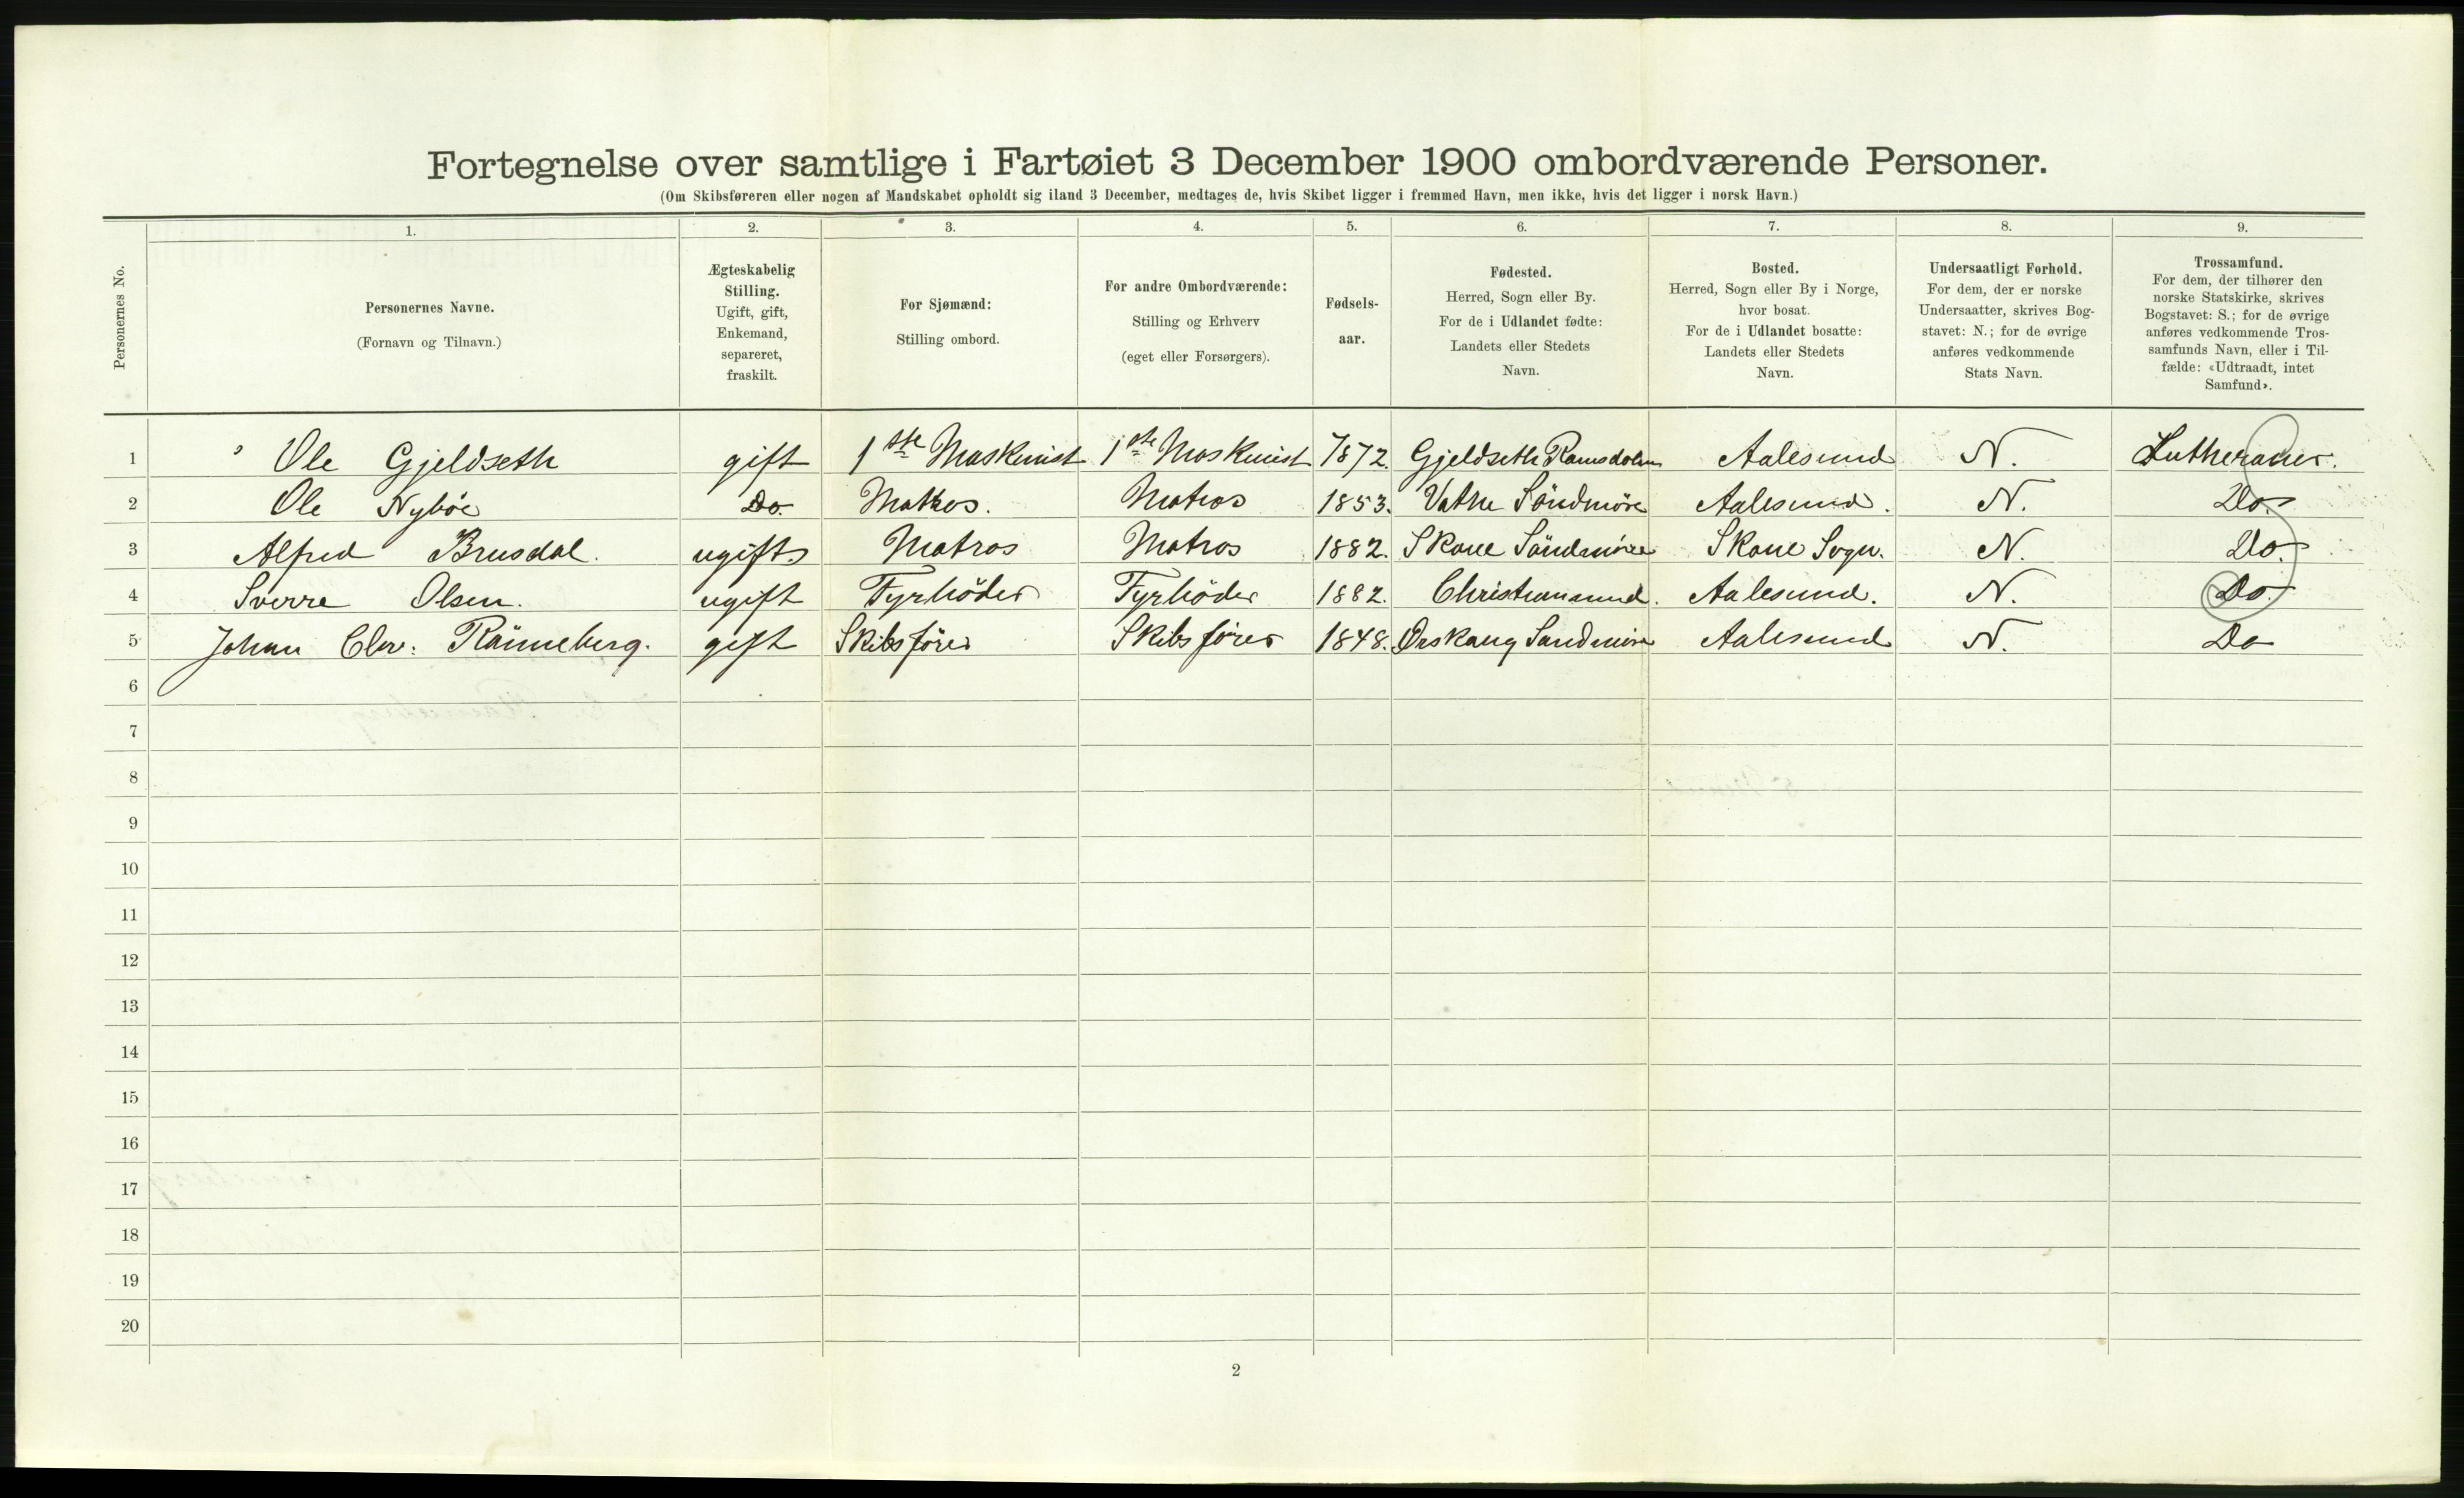 Fortegnelse over samtlige i Fartøiet 3 December 1900 ombordværende Personer.
(Om Skibsføreren eller nogen af Mandskabet opholdt sig iland 3 December, medtages de, hvis Skibet ligger i fremmed Havn, men ikke, hvis det ligger i norsk Havn.)
Personernes No.
1. 2. 3. 4. 5. 6. 7. 8. 9.
Personernes Navne.
(Fornavn og Tilnavn.)
Ægteskabelig
Stilling.
Ugift, gift,
Enkemand,
separeret,
fraskilt.
For Sjømænd:
Stilling ombord.
For andre Ombordværende:
Stilling og Erhverv
(eget eller Forsørgers).
Fødsels-
aar.
Fødested.
Herred, Sogn eller By.
For de i Udlandet fødte:
Landets eller Stedets
Navn.
Bosted.
Herred, Sogn eller By i Norge,
hvor bosat.
For de i Udlandet bosatte:
Landets eller Stedets
Navn.
Undersaatligt Forhold.
For dem, der er norske
Undersaatter, skrives Bog-
stavet: N.; for de øvrige
anføres vedkommende
Stats Navn.
Trossamfund.
For dem, der tilhører den
norske Statskirke, skrives
Bogstavet: S.; for de øvrige
anføres vedkommende Tros-
samfunds Navn, eller i Til-
fælde: «Udtraadt, intet
Samfund».
1 Ole Gjeldseth gift 1ste Maskinist 1ste Maskinist 1872. Gjeldseth Romsdalen Aalesund N. Lutheraner.
2 Ole Nybøe Do. Matros. Matros 1853. Vatne Söndmöre Aalesund. N. Do.
3 Alfred Brusdal. ugift Matros Matros 1882. Skoue Söndmöre Skoue Sogn. N. Do.
4 Sverre Olsen. ugift Fyrböder Fyrböder 1882. Christiansund. Aalesund. N. Do.
5 Johan Chr: Rönneberg. gift Skibsförer Skibsförer 1848. Ørskaug Söndmöre Aalesund N. Do
6
7
8
9
10
11
12
13
14
15
16
17
18
19
20
2